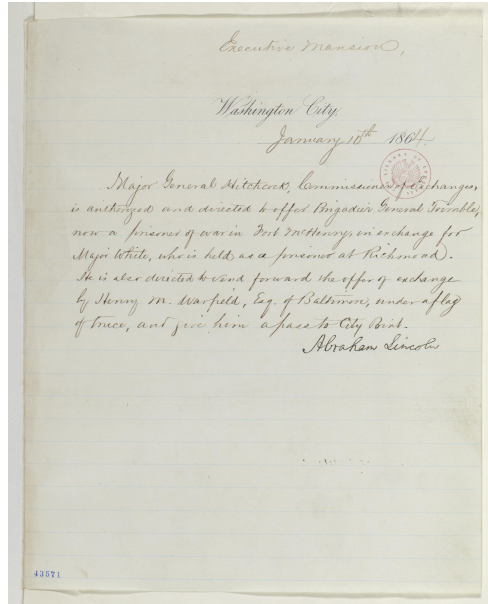 Executive Mansion,
Washington City,
January 10th 1864.
Major General Hitchcock, Commissioner of exchanges,
is authorized and directed to offer Brigadier General Trimble,
now a prisoner of war in Fort McHenry, in exchange for
Major White, who is held as a prisoner at Richmond.
He is also directed to send forward the offer of exchange
by Henry M. Warfield, Esq. of Baltimore, under a flag
of truce, and give him a pass to City Point.
Abraham Lincoln
43571